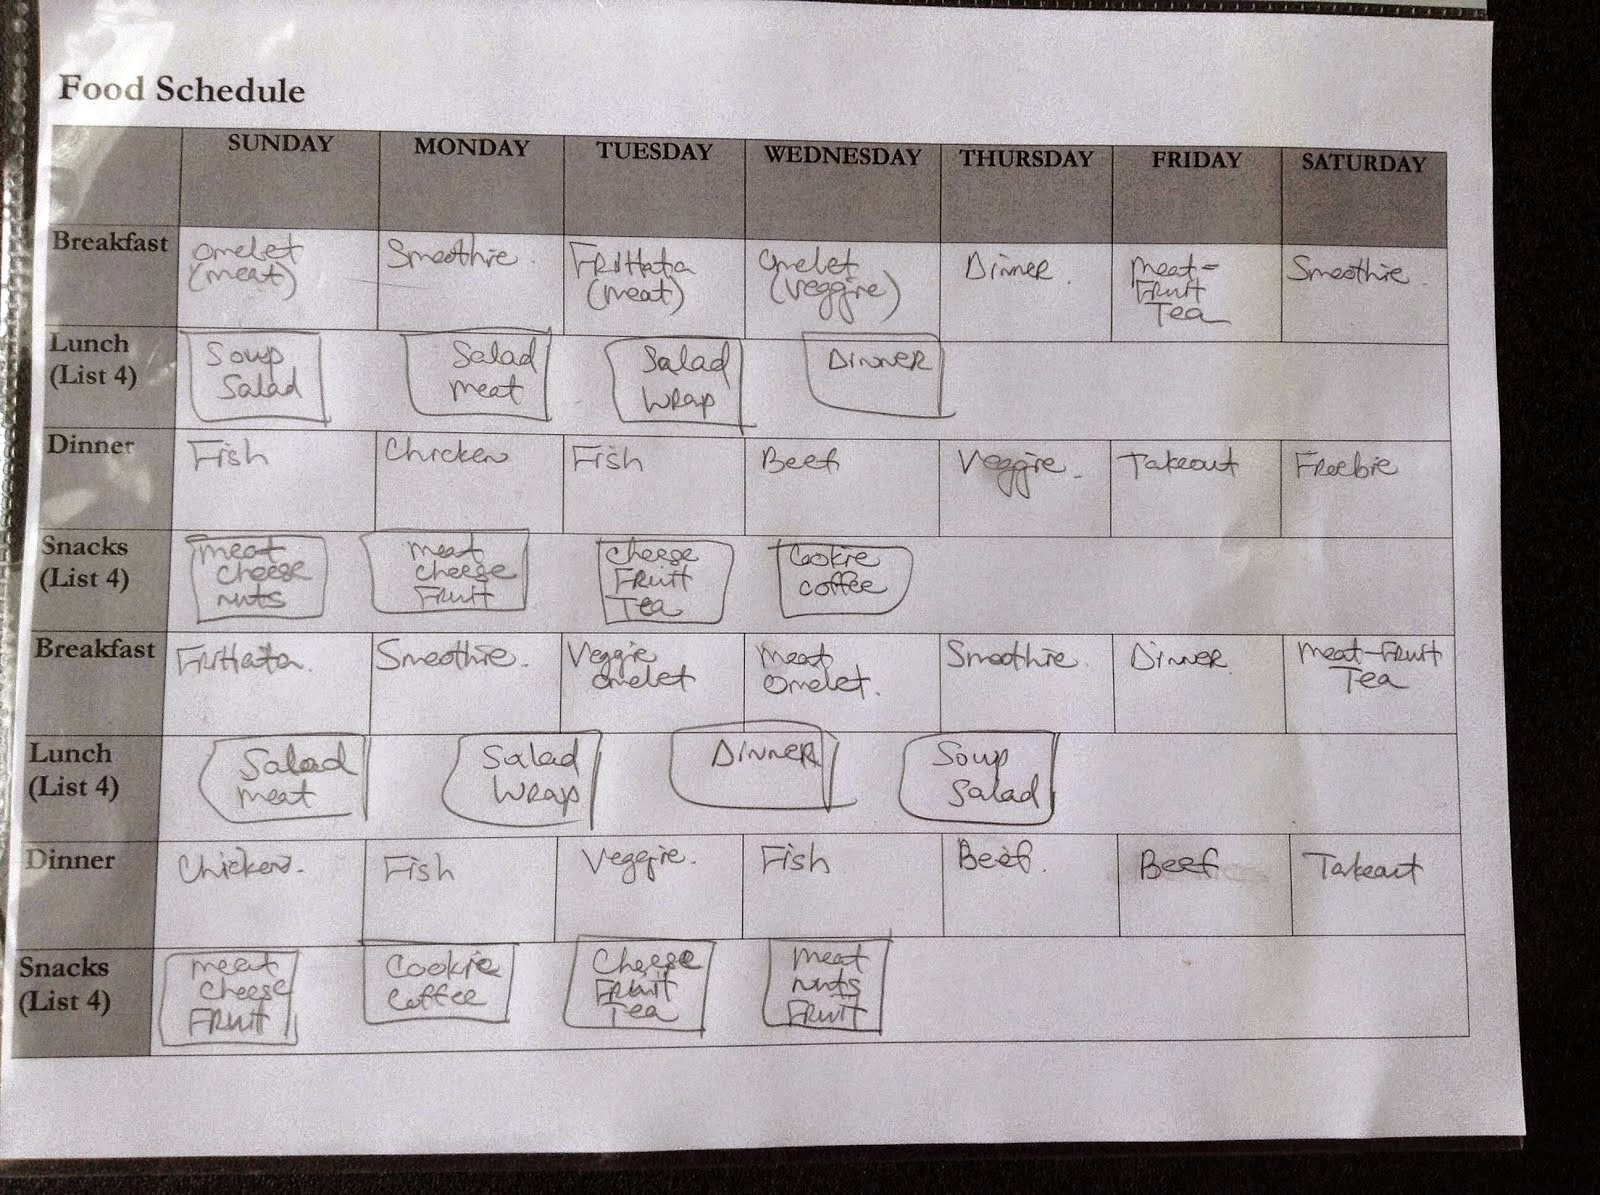 Food Schedule
SUNDAY MONDAY TUESDAY WEDNESDAY THURSDAY FRIDAY SATURDAY
Breakfast
omelet
(meat)
Smoothie.
FRittata
(meat)
Omelet
(veggie)
Dinner.
meat-
Fruit
Tea
Smoothie.
Lunch
(List 4)
Soup
Salad
Salad
meat
Salad
Wrap
Dinner
Dinner
Fish
Chicken
Fish
Beef
Veggie.
Takeout
Freebie
Snacks
(List 4)
meat
cheese
nuts
meat
cheese
Fruit
cheese
Fruit
Tea
Cookie
coffee
Breakfast
Frittata.
Smoothie.
Veggie
omelet
Meat
omelet.
Smoothie.
Dinner.
Meat-Fruit
Tea
Lunch
(List 4)
Salad
meat
Salad
Wrap
Dinner
Soup
Salad
Dinner
Chicken.
Fish
Veggie.
Fish
Beef.
Beef
Takeout
Snacks
(List 4)
meat
cheese
Fruit
Cookie
coffee
Cheese
Fruit
Tea
meat
nuts
Fruit